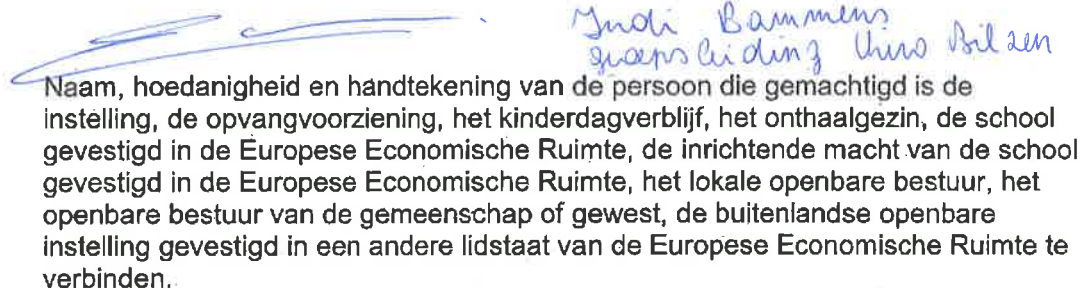 Indi Bammens
groepsleiding Chiro Bilzen
Naam, hoedanigheid en handtekening van de persoon die gemachtigd is de
instelling, de opvangvoorziening, het kinderdagverblijf, het onthaalgezin, de school
gevestigd in de Europese Economische Ruimte, de inrichtende macht van de school
gevestigd in de Europese Economische Ruimte, het lokale openbare bestuur, het
openbare bestuur van de gemeenschap of gewest, de buitenlandse openbare
instelling gevestigd in een andere lidstaat van de Europese Economische Ruimte te
verbinden.